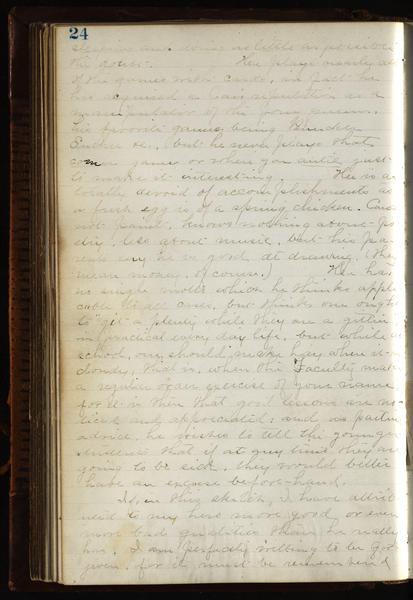 24
sleeping and doing as little as possible in
the house. He plays nearly all
of the games with cards, in fact he
has acquired a fair reputation as a
manipulator of the
his favorite games being
Euchre &c, but he never plays that
game or where you "ante" just
to make it interesting. He is as
totally devoid of accomplishments as
a fresh egg is of a spring chicken. Can
not paint, knows nothing about po
etry, less about music, but his pa
rents say he is good at drawing. (They
mean money, of course.) He has
no single motto which he thinks appli
cable to all cases, but thinks one ought
to "git" a plenty while they are a gittin
in practical every day life, but while at
school, one should make hay when it is
cloudy, that is, when the Faculty make
a regular organ exercise of your name
for it is then that good lessons are no
ticed and appreciated; and as parting
advice, he wishes to tell the younger
students that if at any time they are
going to be sick, they would better
have an excuse before-hand.
If, in this sketch, I have attrib
uted to my hero more good or even
more bad qualities than he really
has, I am perfectly willing to be for
given, for it must be remembered